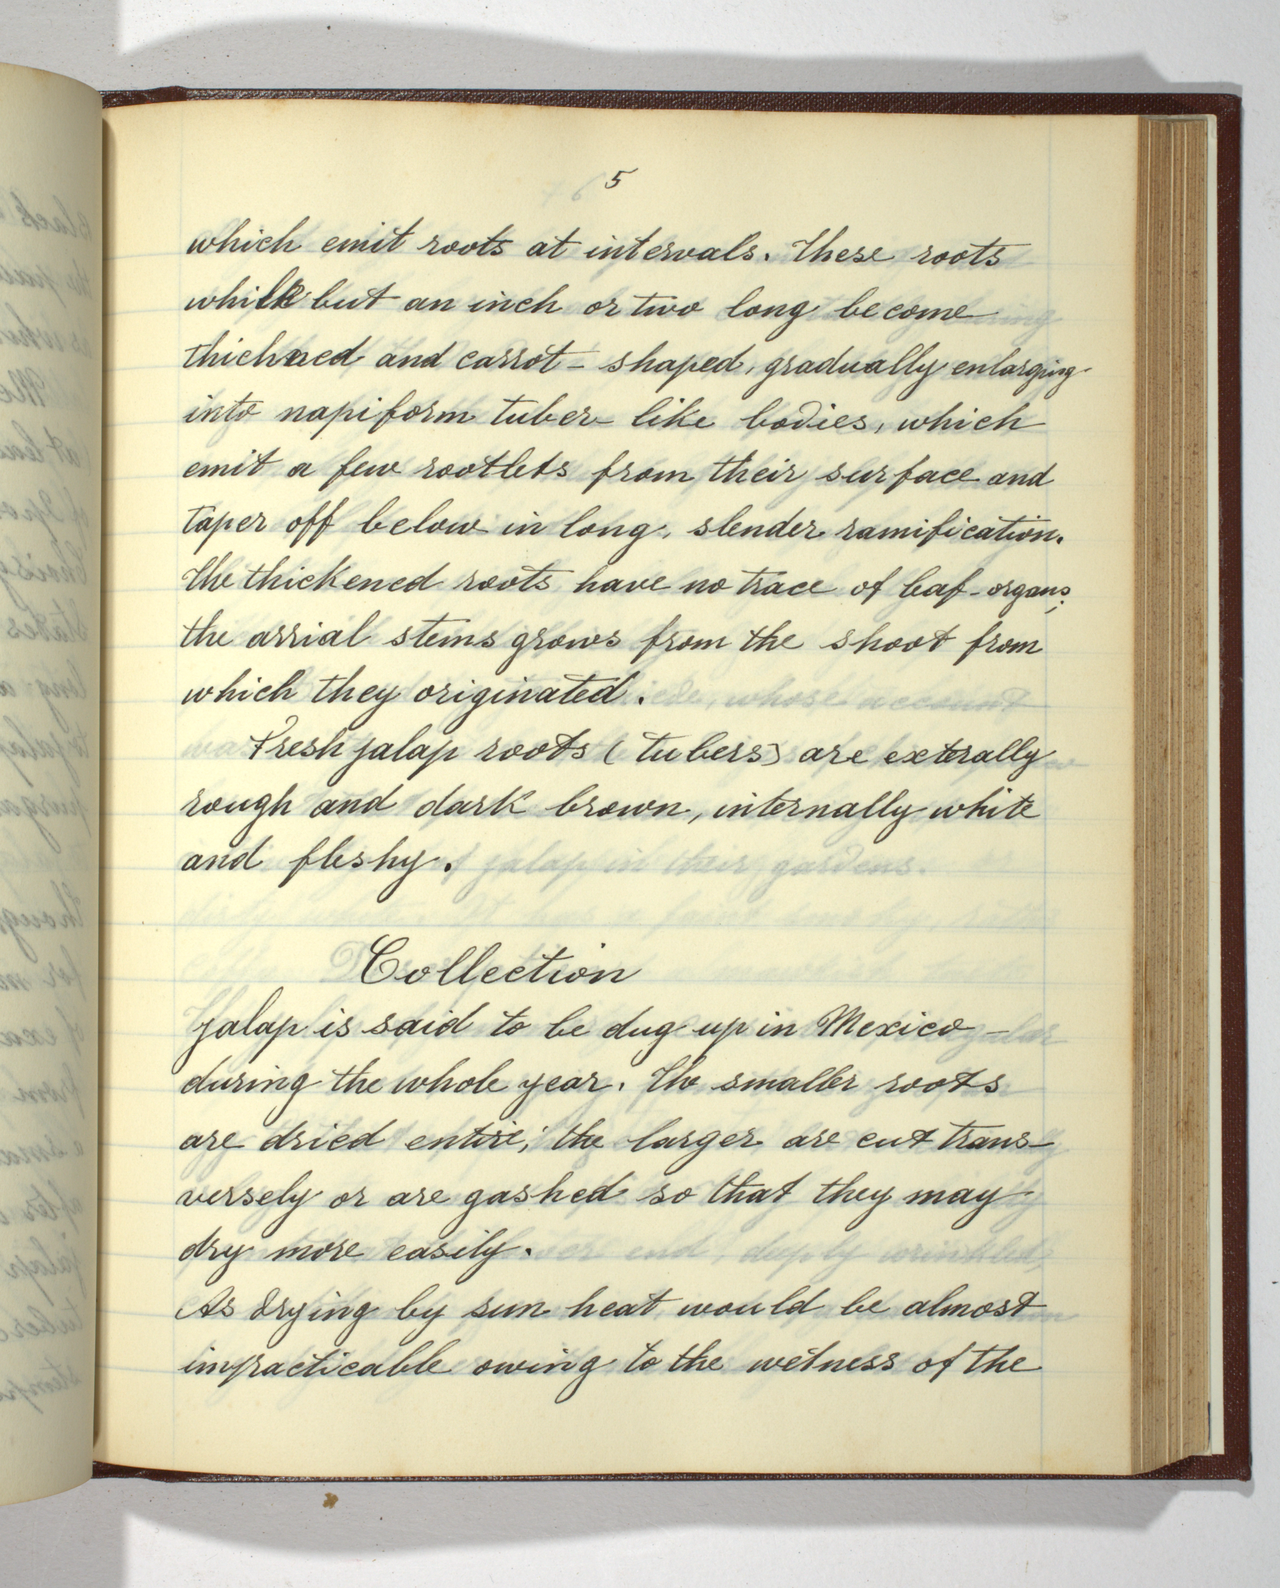 5
which emit roots at intervals. These roots
while but an inch or two long become
thickned and carrot - shaped, gradually enlarging
into napiform tuber like bodies, which
emit a few rootlets from their surface and
taper off below in long, slender ramification.
The thickened roots have no trace of leaf-organs;
the arrial stems grows from the shoot from
which they originated.
Fresh jalap roots (tubers) are exterally
rough and dark brown, internally white
and fleshy.
Collection
Jalap is said to be dug up in Mexico -
during the whole year. The smaller roots
are dried entire; the larger are cut trans-
versely or are gashed so that they may
dry more easily.
As drying by sun heat would be almost
impracticable owing to the wetness of the